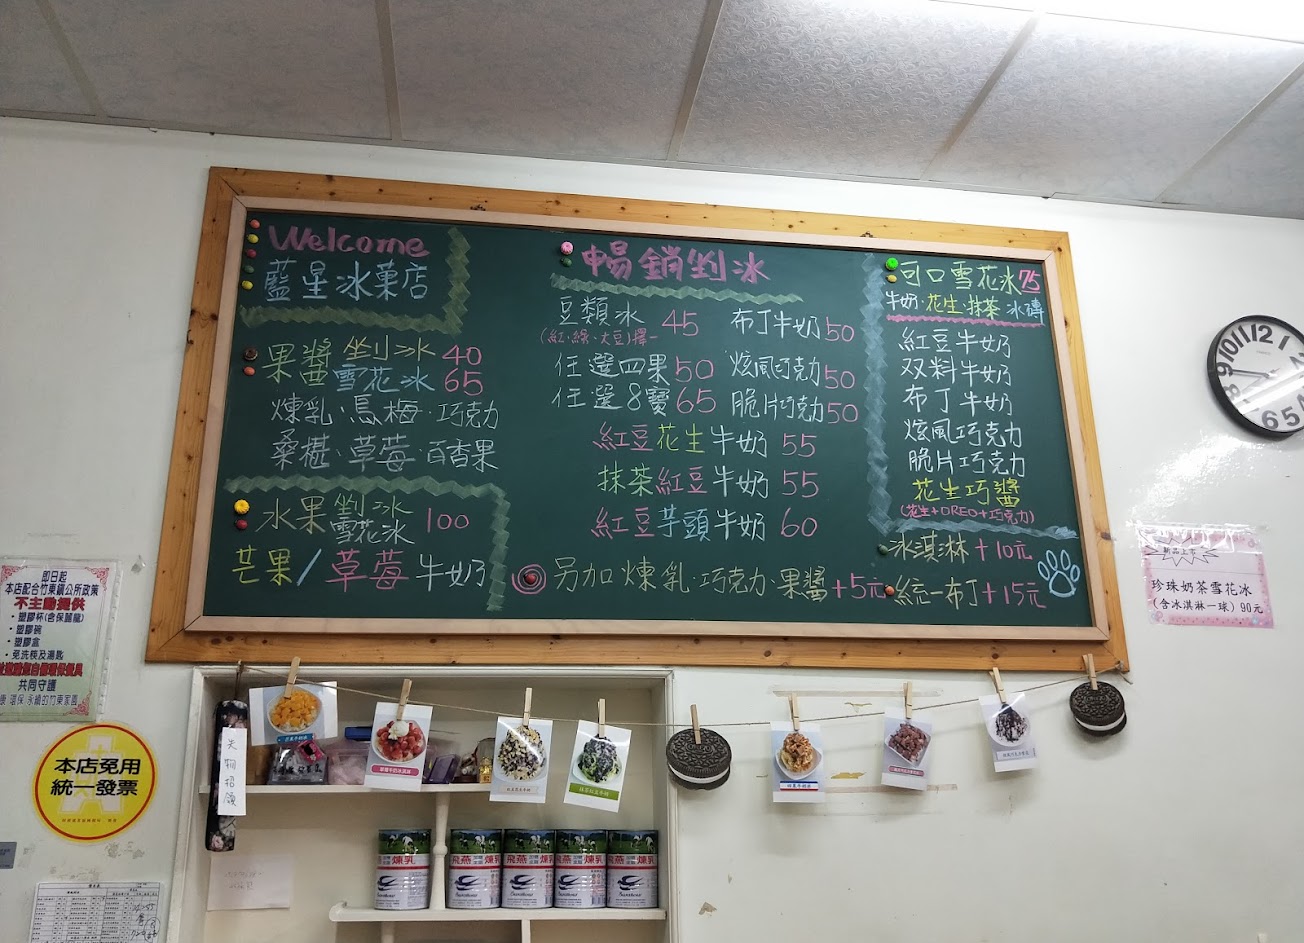 Welcome
藍星冰菓店
果醬 剉冰 40
雪花冰 65
煉乳·烏梅·巧克力
桑椹·草莓·百香果
水果 剉冰
雪花冰 100
芒果/草莓牛奶
暢銷剉冰
豆類冰 45
(紅·綠·大豆)擇一
任選四果50
任選8寶65
布丁牛奶50
炫風巧克力50
脆片巧克力50
紅豆花生牛奶 55
抹茶紅豆牛奶 55
紅豆芋頭牛奶 60
另加煉乳·巧克力·果醬+5元
可口雪花冰75
牛奶·花生·抹茶 冰磚
紅豆牛奶
双料牛奶
布丁牛奶
炫風巧克力
脆片巧克力
花生巧醬
(花生+OREO+巧克力)
冰淇淋+10元
統一布丁+15元
新品上市
珍珠奶茶雪花冰
(含冰淇淋一球) 90元
即日起
本店配合竹東鎮公所政策
不主動提供
·塑膠杯(含保麗龍)
·塑膠碗
·塑膠盒
·免洗筷及湯匙
共同守護
環保 永續的竹東家園
本店免用
統一發票
失物招領
飛燕 煉乳
飛燕 煉乳
飛燕 煉乳
飛燕 煉乳
飛燕 煉乳